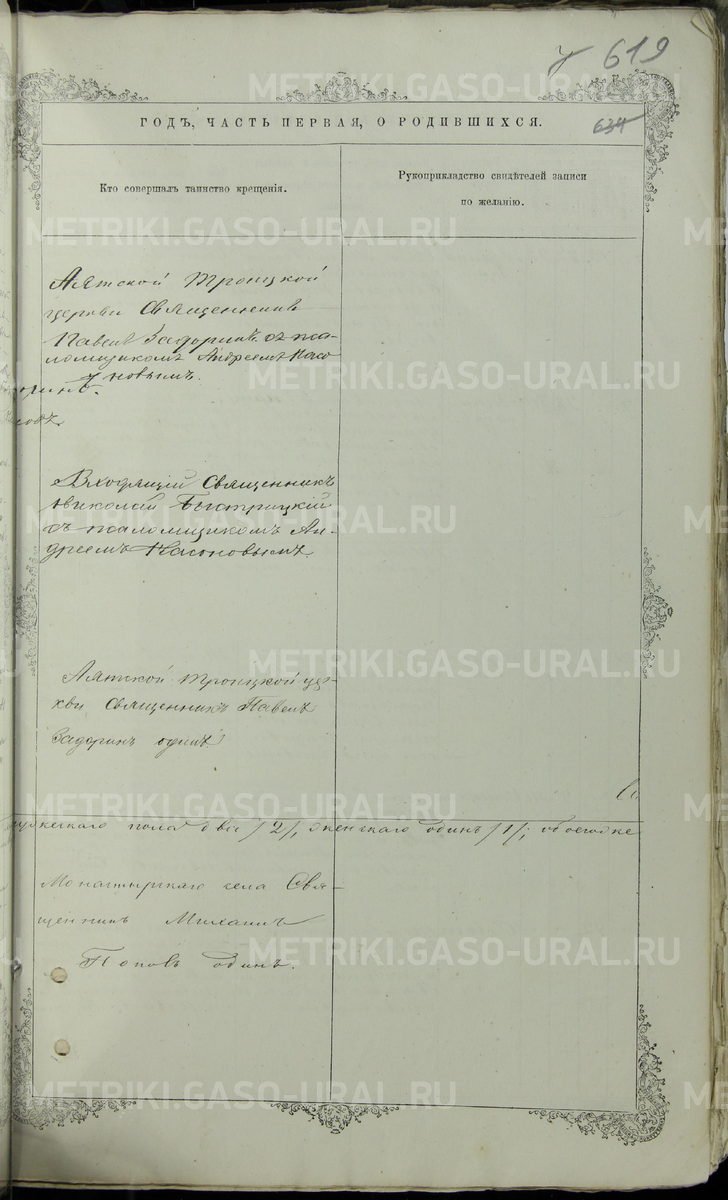 619
634
ГОДЪ, ЧАСТЬ ПЕРВАЯ, О РОДИВШИХСЯ.
Кто совершалъ таинство крещенія.
Рукоприкладство свидѣтелей записи
по желанію.
Аятской Троицкой
церкви Священникъ
Павелъ Задоринъ съ пса-
ломщикомъ Андреемъ Насо
новымъ.
Входящій Священникъ
Николай Быстрицкій
съ псаломщикомъ Ан-
дреемъ Насоновымъ
Аятской Троицкой цер-
кви Священникъ Павелъ
Задоринъ одинъ
мужескаго пола два /2/, женскаго одинъ /1/; обоего же
Монастырскаго села Свя-
щенникъ Михаилъ
Поповъ одинъ.
METRIKI.GASO-URAL.RU